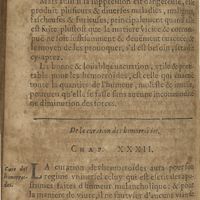 Mais si la suppression est dangereuse, elle
produit plusieurs & diverses maladies, malignes,
fascheuses & furieuses, principalement quand elle
est
plustost que la matiere vitiee & corrom-
puë ne soit suffisamment & deuëment euacuee, &
moyens de les prouoquer, s'il est besoin, seront
cy apres.
La bonne & louable euacuation, vtile & pro-
table pour les hemorroides, est celle qui excite
toute la quantité de l'humeur, moleste & inutile,
pourueu qu'elle se fasse sans aucune incommodité
ne diminution des forces.
De la curation des hemorroides,
CHAP. XXXII.
Cure des
hemorroi-
des.
LA curation des hemorroides aura pour son
regime vniuersel celuy qui est escrit des apo-
stumes faites d'humeur melancholique: & pour
la maniere de viure, il ne faut vser d'aucune viande